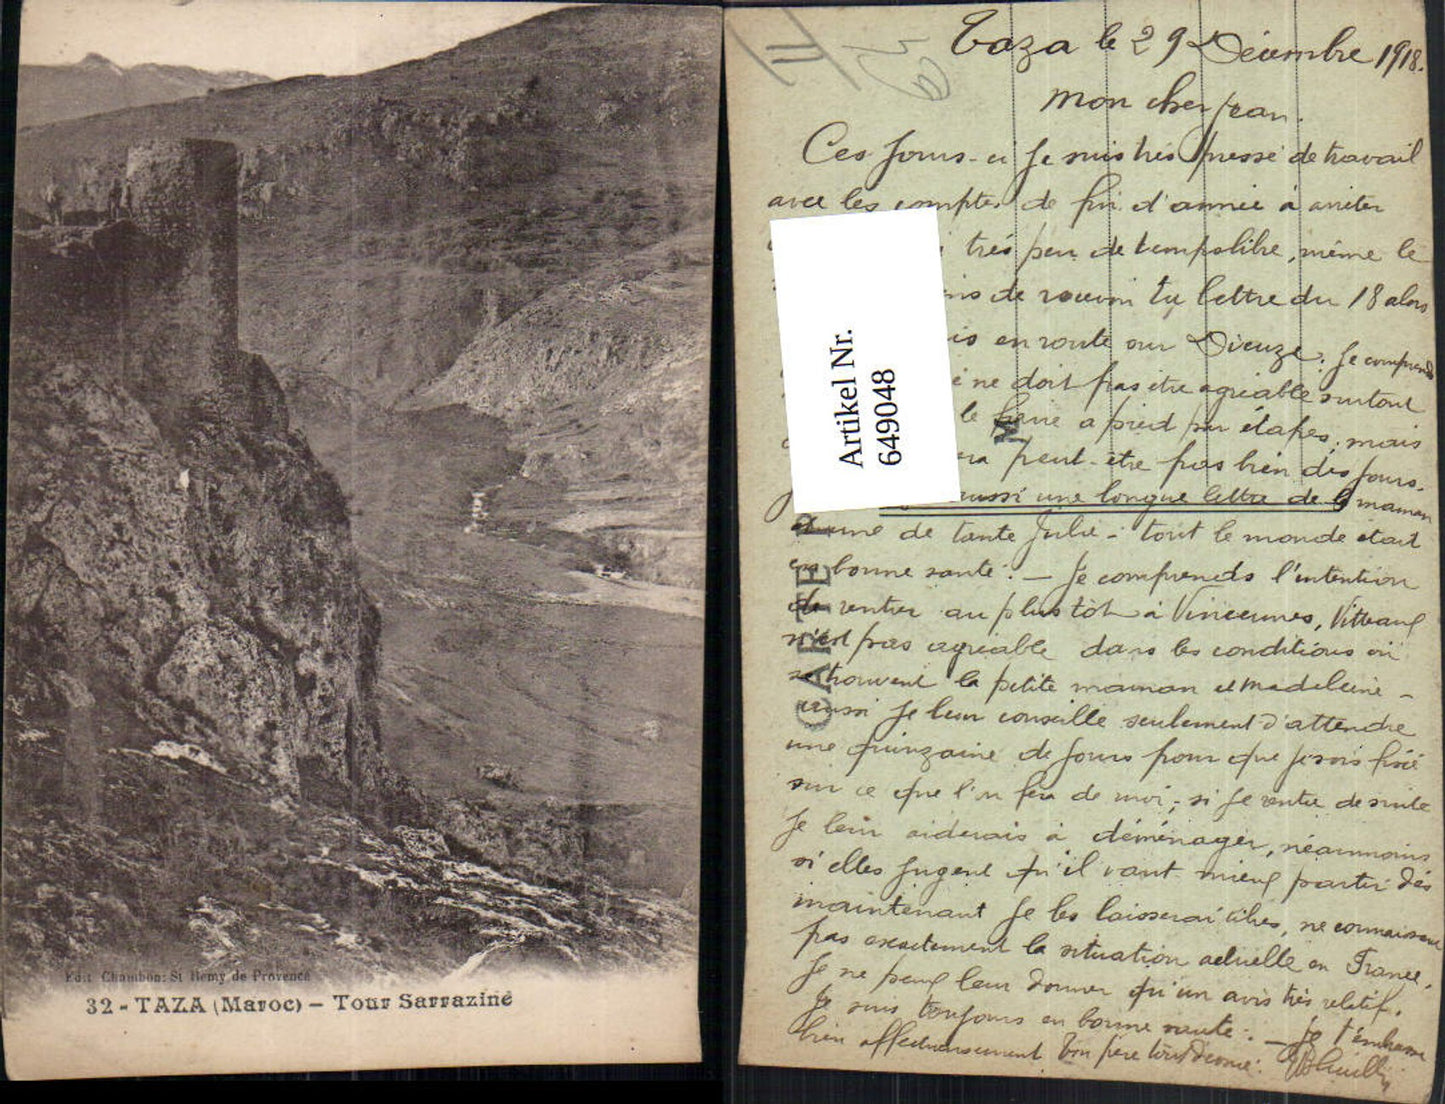 Edit. Chambon: St Remy de Provence
32 - TAZA (Maroc) - Tour Sarrazine
Taza le 29 Décembre 1918.
Mon cher Jean.
Ces jours-ci je suis très pressé de travail
avec les comptes de fin d'année à arrêter
très peu de temps libre, même le
de recevoir ta lettre du 18 alors
en route sur Dieuze. Je comprends
ne doit pas être agréable surtout
le faire à pied par étapes, mais
peut-être pas bien des jours.
aussi une longue lettre de la maman
une de tante Julie - tout le monde était
en bonne santé. - Je comprends l'intention
de rentrer au plus tôt à Vincennes, Vitteaux
n'est pas agréable dans les conditions où
se trouvent la petite maman et Madeleine -
aussi je leur conseille seulement d'attendre
une quinzaine de jours pour que je sois fixé
sur ce que l'on fera de moi; si je rentre de suite
je leur aiderais à déménager, néanmoins
si elles jugent qu'il vaut mieux partir dès
maintenant je les laisserai libres, ne connaissant
pas exactement la situation actuelle en France,
je ne peux leur donner qu'un avis très relatif.
Je suis toujours en bonne santé. - Je t'embrasse
bien affectueusement Ton père tout dévoué.
CARTE P
M
Artikel Nr.
649048